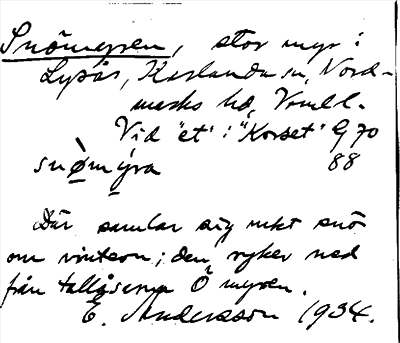 Snömyren, stor myr i
Lysås, Karlanda sn, Nord-
marks hd, Vrml l.
Vid "et" i "Korset" G 70
snø̀mýra 88
Där samlar sig mkt snö
om vintern; den ryker ned
från tallåserna Ö myren.
E. Andersson 1934.